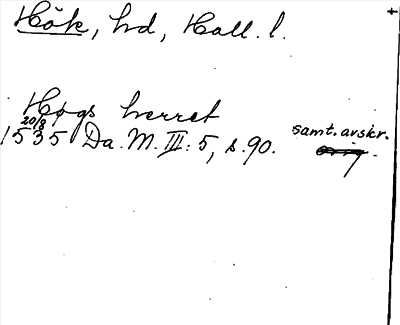 Hök, hd, Hall. l.
Høgs herret
20/8
1535 Da. M. III: 5, s. 90.
samt. avskr.
orig.